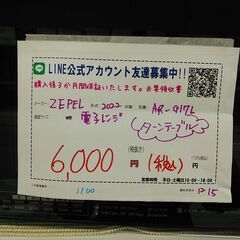 LINE公式アカウント友達募集中!!
購入後3か月間保証いたします。※要領収書
メーカー ZEPEL 年式 2022 年製 型番 AR-G17L
サイズ 電子レンジ ターンテーブル
(税抜き)
6,000円(税込)
営業時間 平日・土曜日10:00~18:00
1100 12/15